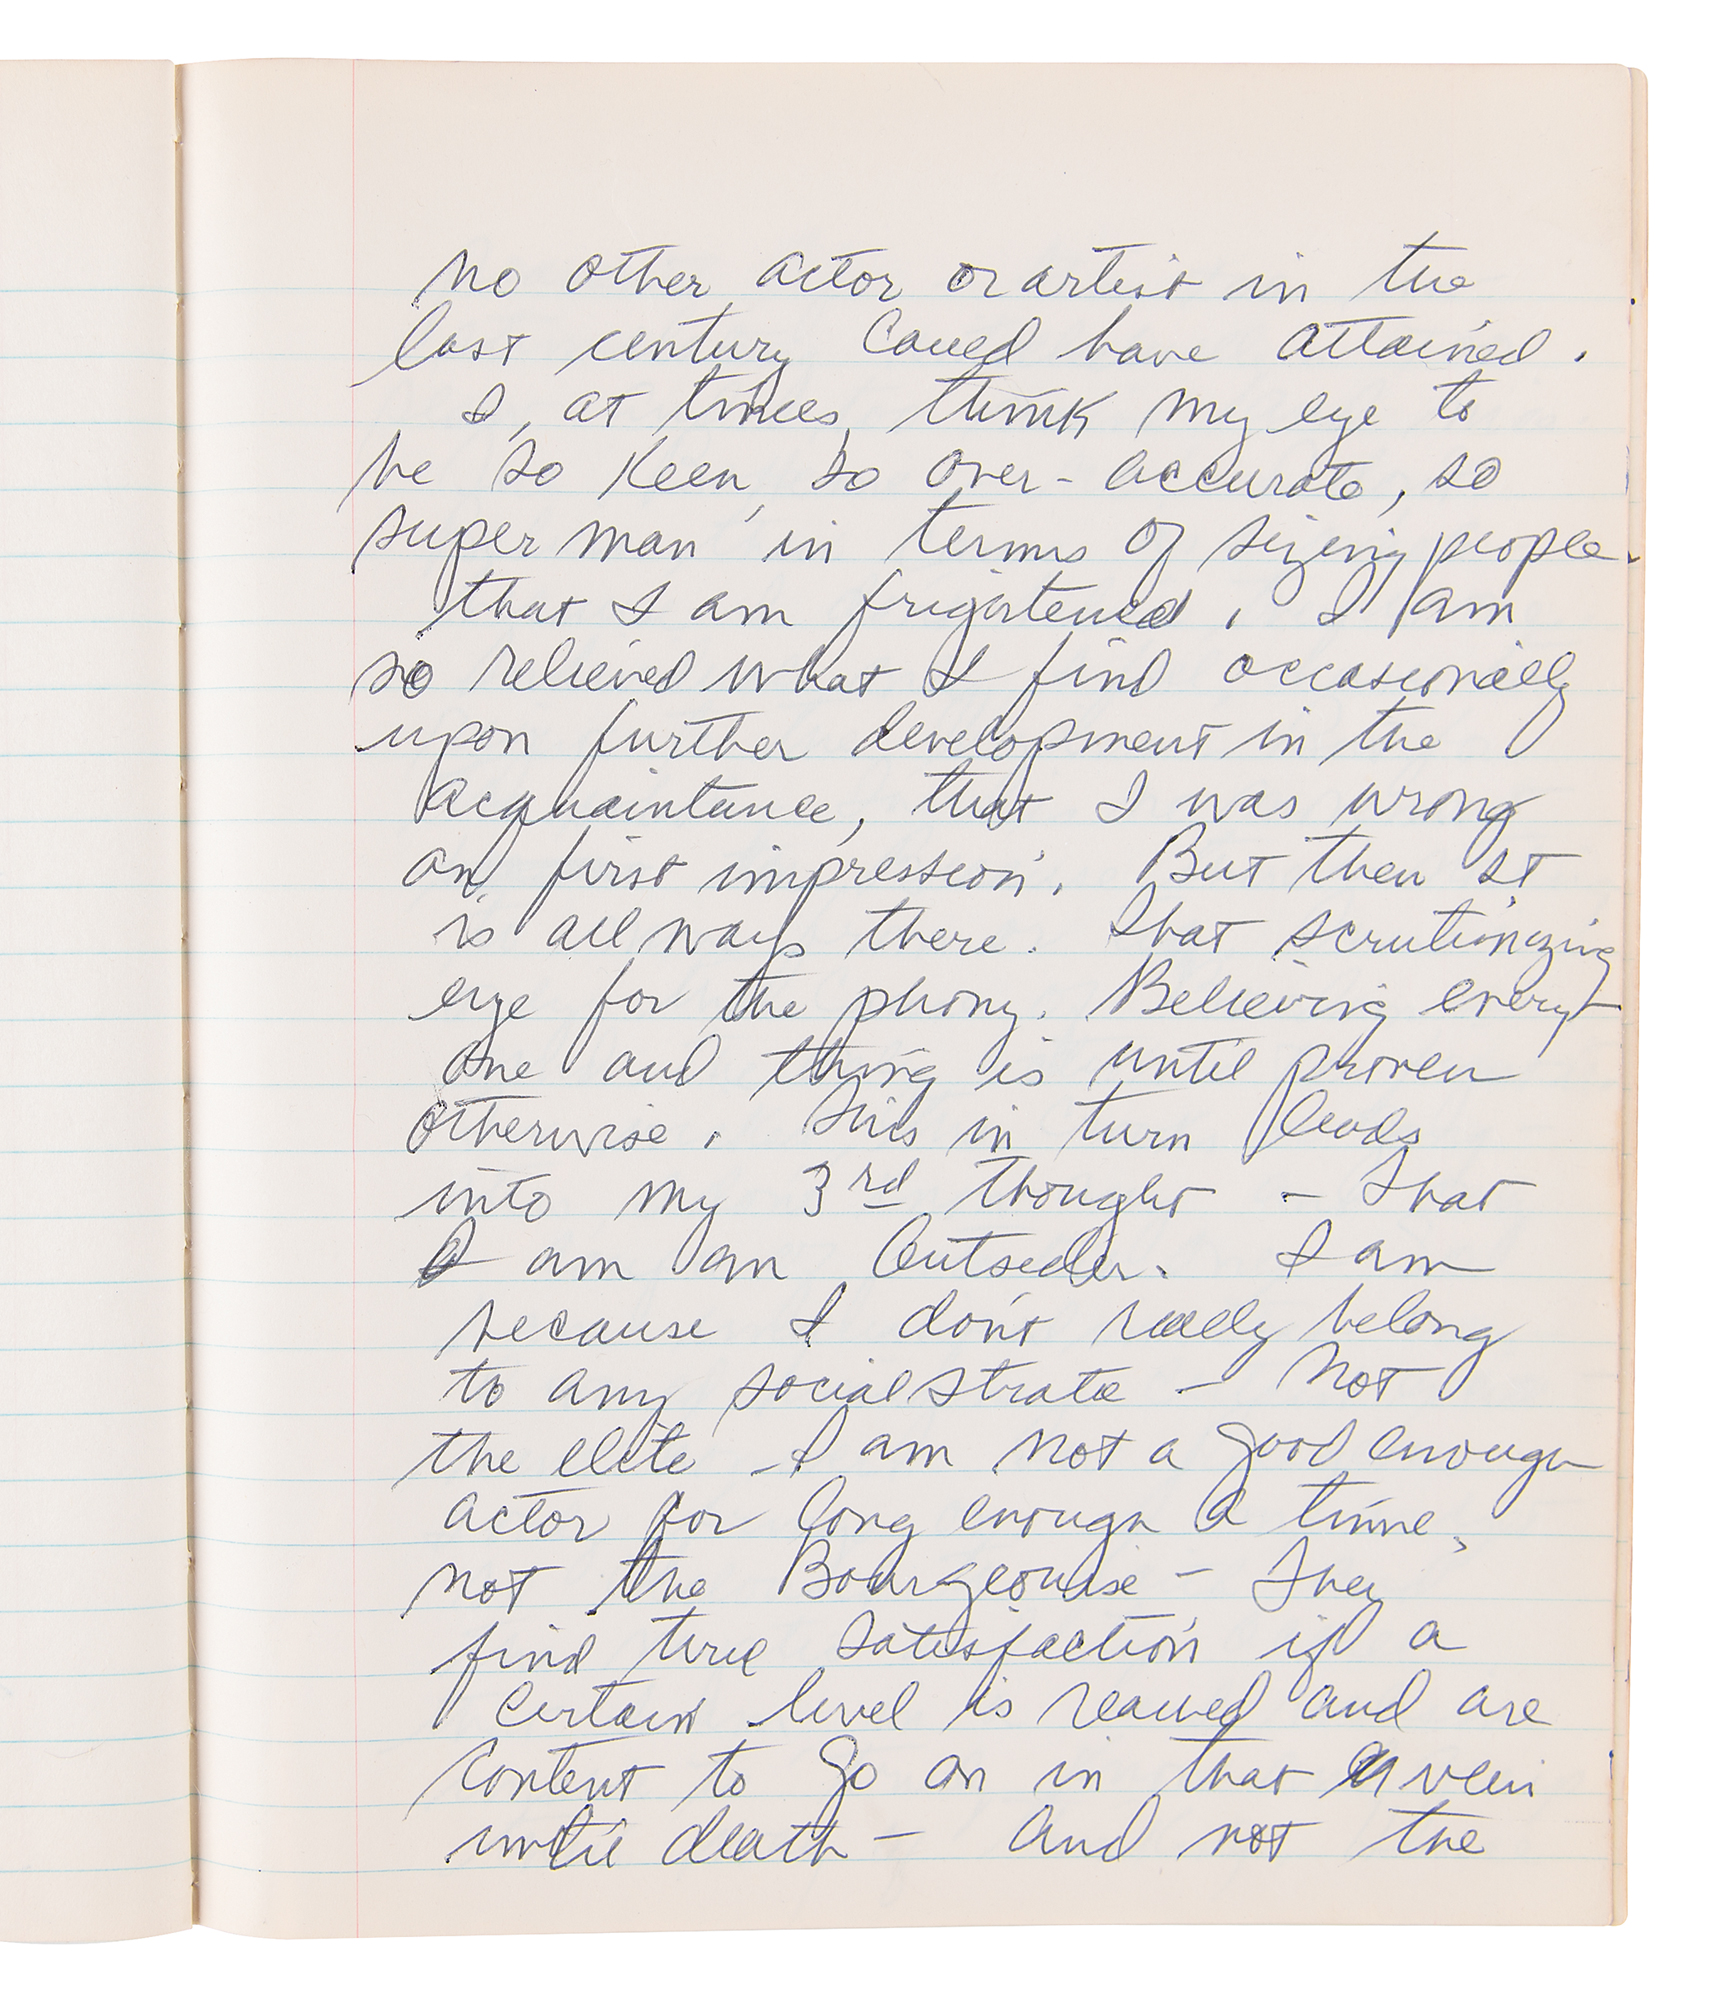 no other actor or artist in the
last century could have attained.
I, at times, think my eye to
be so keen, so over-accurate, so
super man in terms of sizeing people
that I am frigntened. I am
so relieved what I find occasionally
upon further development in the
acquaintance, that I was wrong
on first impression. But then it
is all ways there. That scrutinizing
eye for the phony. Believing every
one and thing is until proven
otherwise. This in turn leads
into my 3rd thought - that
I am an Outsider. I am
because I don't really belong
to any social strata - Not
the elite - I am not a good enough
actor for long enough a time,
not the Bourgeouise - They
find true satisfaction if a
certain level is reached and are
content to go on in that vein
until death - and not the